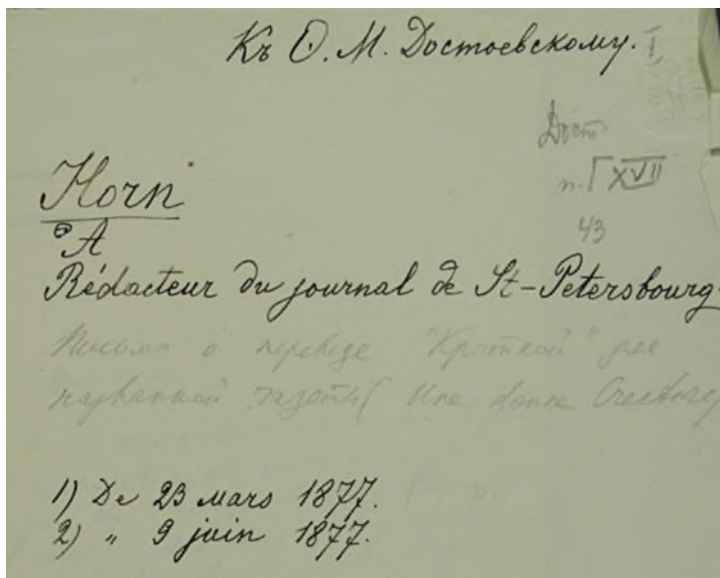 Къ Ѳ. М. Достоевскому. I
Дост
п. Г XVII
43
Horn
A
Rédacteur du journal de St-Petersbourg-
Письмо о переводе "Кроткой" для
названной газеты (Une douce Creature)
1) De 23 mars 1877.
2) „ 9 juin 1877.